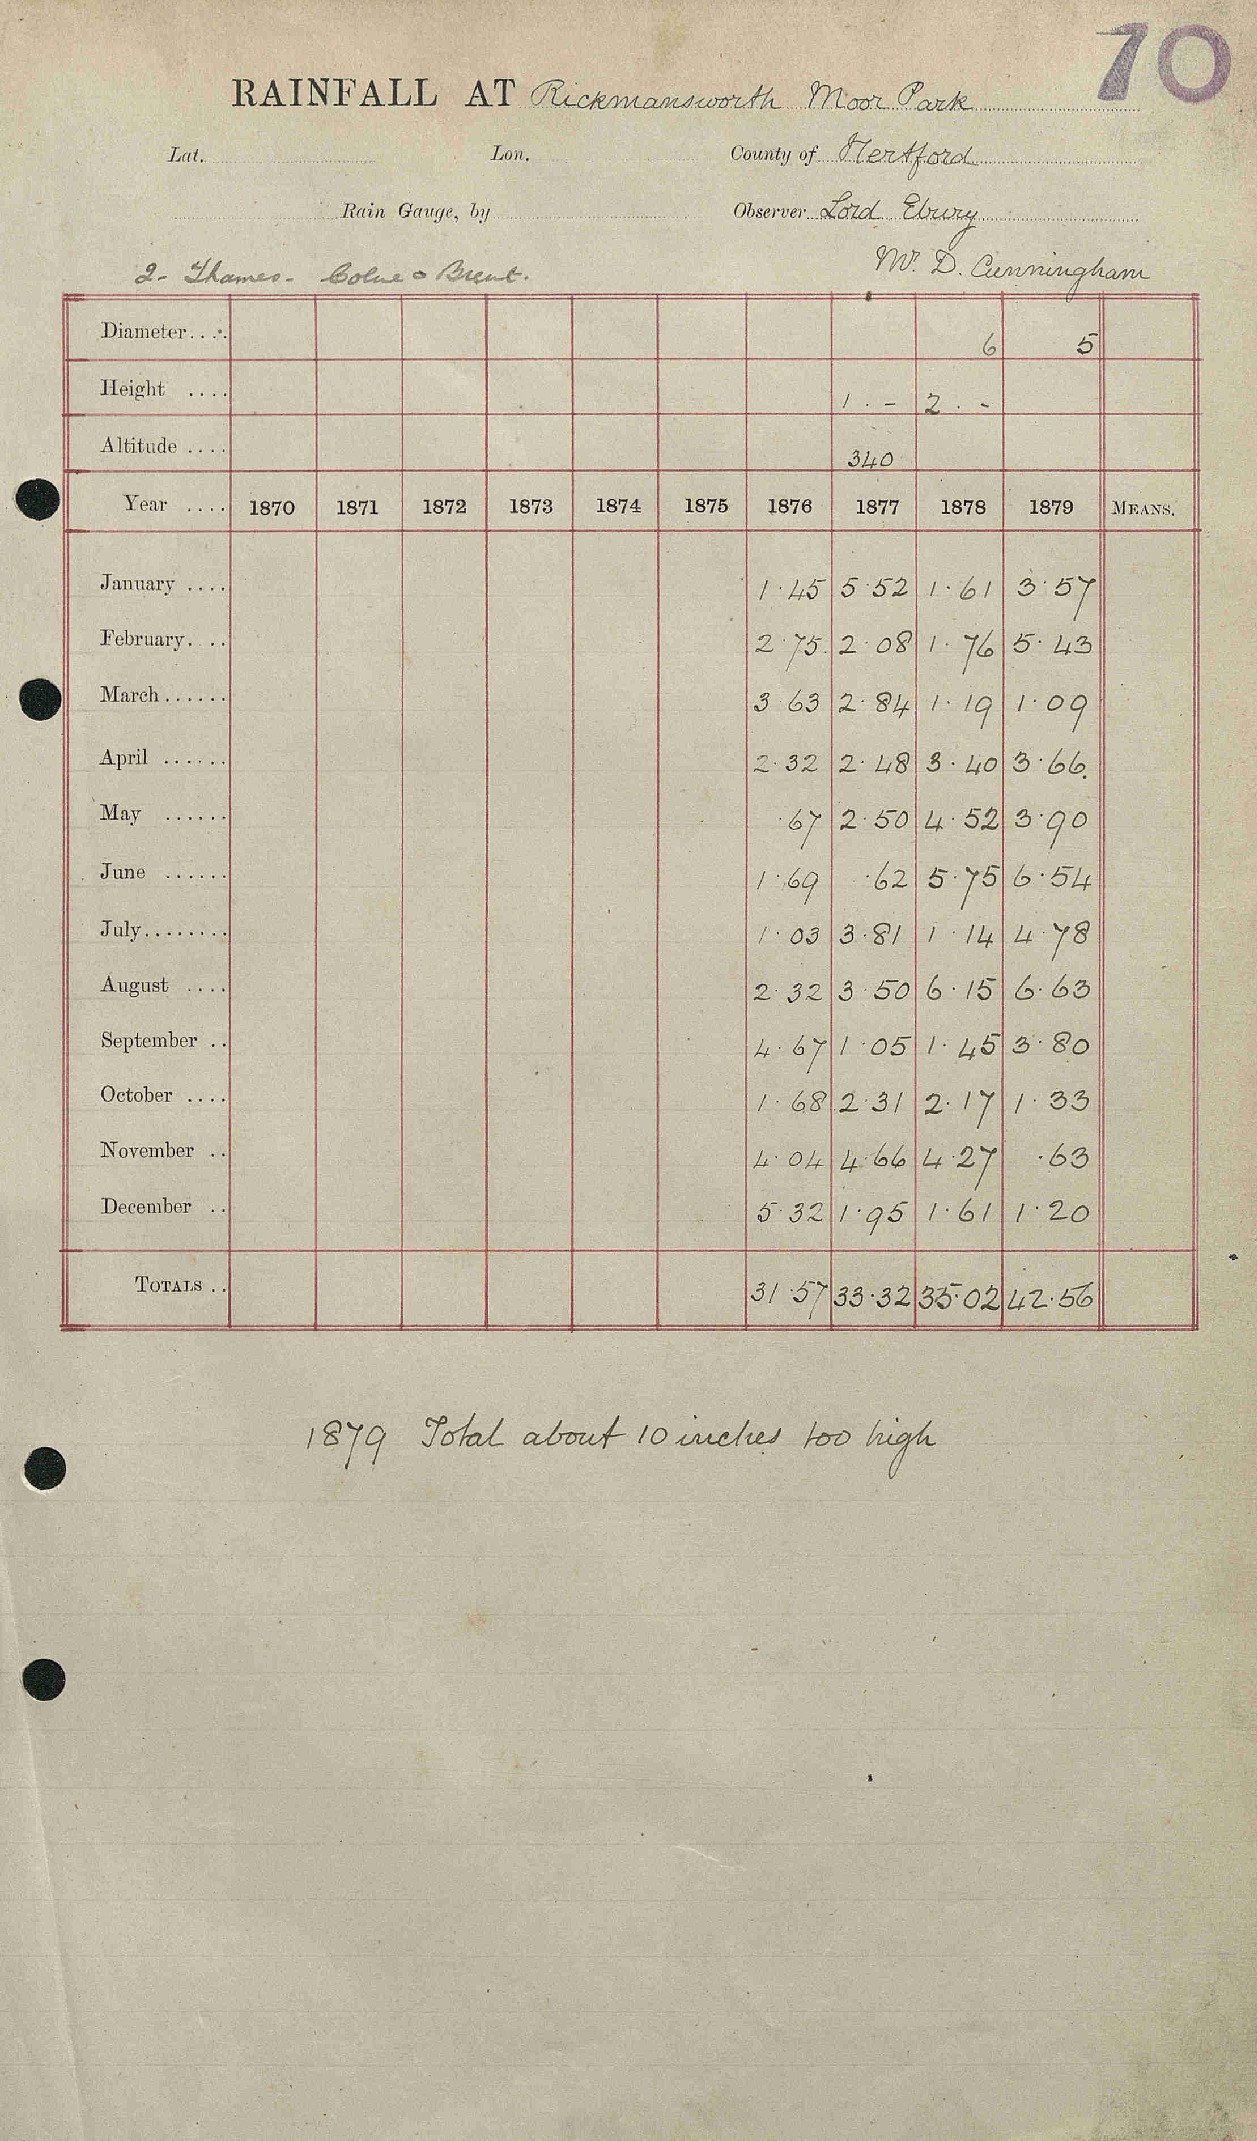 70
RAINFALL AT Rickmansworth Moor Park
Lat. Lon. County of Hertford
Rain Gauge, by Observer Lord Ebury
Mr. D. Cunningham
2 - Thames - Colne & Brent.
Diameter.... 6 5
Height .... 1 . - 2 . -
Altitude .... 340
Year .... 1870 1871 1872 1873 1874 1875 1876 1877 1878 1879 MEANS.
January .... 1.45 5.52 1.61 3.57
February.... 2.75 2.08 1.76 5.43
March...... 3.63 2.84 1.19 1.09
April ...... 2.32 2.48 3.40 3.66
May ...... .67 2.50 4.52 3.90
June ...... 1.69 .62 5.75 6.54
July........ 1.03 3.81 1.14 4.78
August .... 2.32 3.50 6.15 6.63
September .. 4.67 1.05 1.45 3.80
October .... 1.68 2.31 2.17 1.33
November .. 4.04 4.66 4.27 .63
December .. 5.32 1.95 1.61 1.20
TOTALS .. 31.57 33.32 35.02 42.56
1879 Total about 10 inches too high